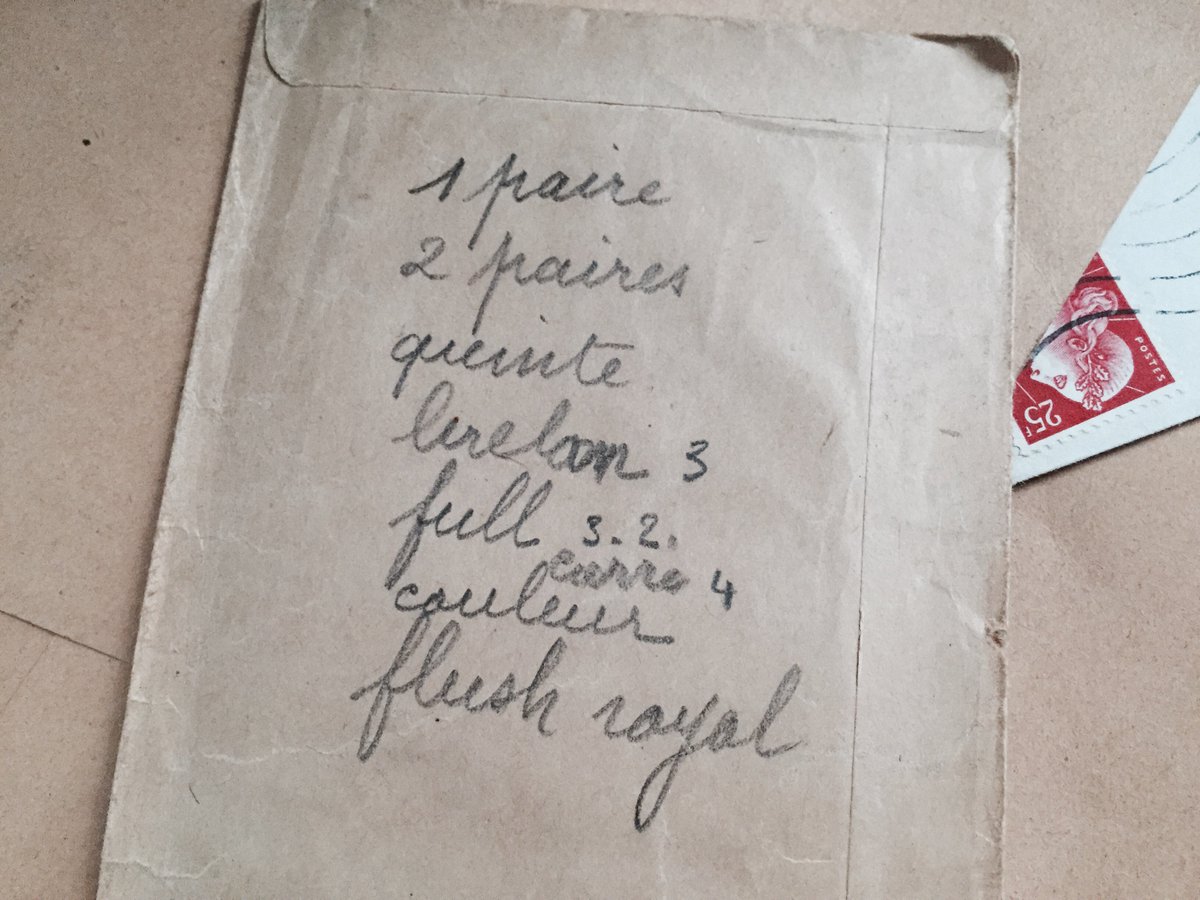 1 paire
2 paires
queinte
3
full 3.2.
carré 4
couleur
flush royal
POSTES
25F